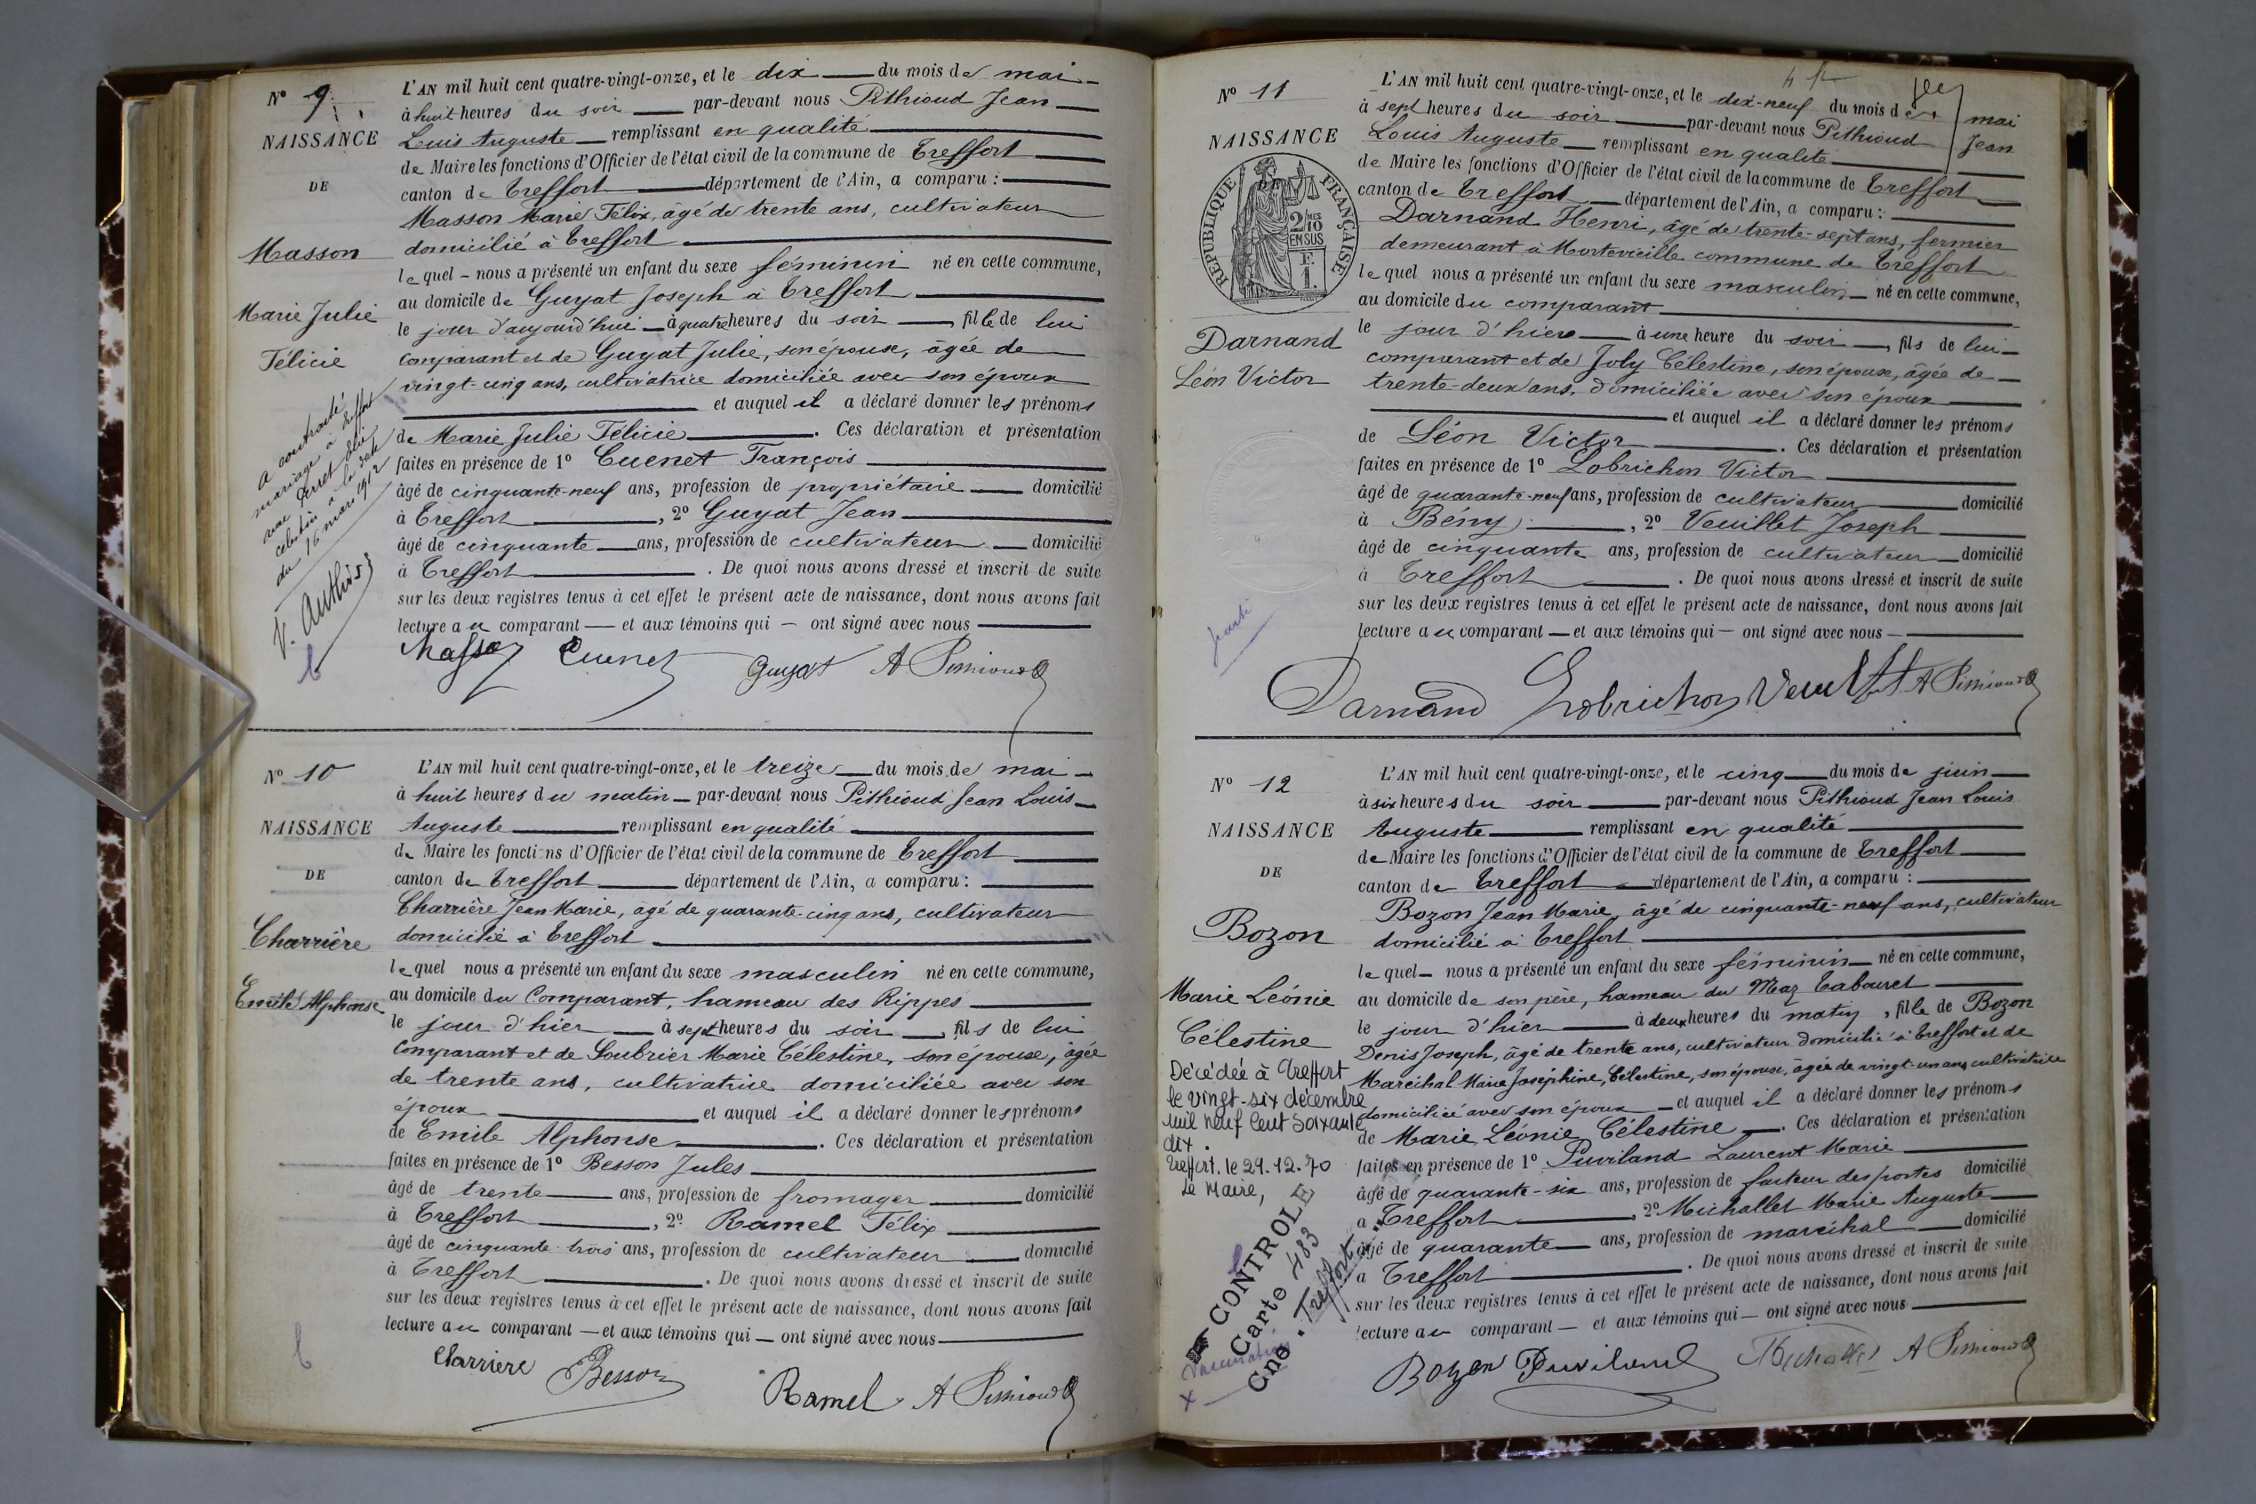 N° 9
NAISSANCE
DE
Masson
Marie Julie
Félicie
a contracté
mariage à Treffort
avec Perret
célestin à la date
du 16 mars 1912
V. Authier
L'AN mil huit cent quatre-vingt-onze, et le dix du mois de mai
à huit heures du soir par-devant nous Pithioud Jean
Louis Auguste remplissant en qualité
de Maire les fonctions d'Officier de l'état civil de la commune de Treffort
canton de Treffort département de l'Ain, a comparu :
Masson Marie Félix, âgé de trente ans, cultivateur
domicilié à Treffort
lequel - nous a présenté un enfant du sexe féminin né en cette commune,
au domicile de Guyat Joseph à Treffort
le jour d'aujourd'hui à quatre heures du soir, fille de lui
comparant et de Guyat Julie, son épouse, âgée de
vingt-cinq ans, cultivatrice domiciliée avec son époux
et auquel il a déclaré donner les prénoms
de Marie Julie Félicie. Ces déclaration et présentation
faites en présence de 1° Cuenet François
âgé de cinquante-neuf ans, profession de propriétaire domicilié
à Treffort, 2° Guyat Jean
âgé de cinquante ans, profession de cultivateur domicilié
à Treffort. De quoi nous avons dressé et inscrit de suite
sur les deux registres tenus à cet effet le présent acte de naissance, dont nous avons fait
lecture au comparant — et aux témoins qui — ont signé avec nous
Masson Cuenet Guyat A Pithioud
N° 10
NAISSANCE
DE
Charrière
Emile Alphonse
L'AN mil huit cent quatre-vingt-onze, et le treize du mois de mai
à huit heures du matin par-devant nous Pithioud Jean Louis
Auguste remplissant en qualité
de Maire les fonctions d'Officier de l'état civil de la commune de Treffort
canton de Treffort département de l'Ain, a comparu :
Charrière Jean Marie, âgé de quarante-cinq ans, cultivateur
domicilié à Treffort
lequel nous a présenté un enfant du sexe masculin né en cette commune,
au domicile du Comparant, hameau des Rippes
le jour d'hier à sept heures du soir, fils de lui
comparant et de Soubrier Marie Célestine, son épouse, âgée
de trente ans, cultivatrice domiciliée avec son
époux et auquel il a déclaré donner les prénoms
de Emile Alphonse. Ces déclaration et présentation
faites en présence de 1° Besson Jules
âgé de trente ans, profession de fromager domicilié
à Treffort, 2° Ramel Félix
âgé de cinquante trois ans, profession de cultivateur domicilié
à Treffort. De quoi nous avons dressé et inscrit de suite
sur les deux registres tenus à cet effet le présent acte de naissance, dont nous avons fait
lecture au comparant — et aux témoins qui — ont signé avec nous
Charriere Besson Ramel A Pithioud
N° 11
NAISSANCE
RÉPUBLIQUE FRANÇAISE
2/10 MES
EN SUS
F.
1.
Darnand
Léon Victor
L'AN mil huit cent quatre-vingt-onze, et le dix-neuf du mois de mai
à sept heures du soir par-devant nous Pithioud Jean
Louis Auguste remplissant en qualité
de Maire les fonctions d'Officier de l'état civil de la commune de Treffort
canton de Treffort département de l'Ain, a comparu :
Darnand Henri, âgé de trente-sept ans, fermier
demeurant à Mortevieille commune de Treffort
lequel nous a présenté un enfant du sexe masculin né en cette commune,
au domicile du comparant
le jour d'hier à une heure du soir, fils de lui
comparant et de Joly Célestine, son épouse, âgée de
trente-deux ans, domiciliée avec son époux
et auquel il a déclaré donner les prénoms
de Léon Victor. Ces déclaration et présentation
faites en présence de 1° Lobrichon Victor
âgé de quarante-neuf ans, profession de cultivateur domicilié
à Bény, 2° Veuillet Joseph
âgé de cinquante ans, profession de cultivateur domicilié
à Treffort. De quoi nous avons dressé et inscrit de suite
sur les deux registres tenus à cet effet le présent acte de naissance, dont nous avons fait
lecture au comparant — et aux témoins qui — ont signé avec nous
Darnand Lobrichon Veuillet A Pithioud
N° 12
NAISSANCE
DE
Bozon
Marie Léonie
Célestine
Décédée à Treffort
le vingt-six décembre
mil neuf cent soixante
dix.
Treffort, le 29.12.70
Le Maire,
CONTROLE
Carte 483
Cne. Treffort
Vaccination
L'AN mil huit cent quatre-vingt-onze, et le cinq du mois de juin
à six heures du soir par-devant nous Pithioud Jean Louis
Auguste remplissant en qualité
de Maire les fonctions d'Officier de l'état civil de la commune de Treffort
canton de Treffort département de l'Ain, a comparu :
Bozon Jean Marie, âgé de cinquante-neuf ans, cultivateur
domicilié à Treffort
lequel — nous a présenté un enfant du sexe féminin né en cette commune,
au domicile de son père, hameau du Maz Tabouret
le jour d'hier à deux heures du matin, fille de Bozon
Denis Joseph, âgé de trente ans, cultivateur domicilié à Treffort et de
Maréchal Marie Joséphine, Célestine, son épouse, âgée de vingt-un ans, cultivatrice
domiciliée avec son époux et auquel il a déclaré donner les prénoms
de Marie Léonie Célestine. Ces déclaration et présentation
faites en présence de 1° Puviland Laurent Marie
âgé de quarante-six ans, profession de facteur des postes domicilié
à Treffort, 2° Michallet Marie Auguste
âgé de quarante ans, profession de maréchal domicilié
à Treffort. De quoi nous avons dressé et inscrit de suite
sur les deux registres tenus à cet effet le présent acte de naissance, dont nous avons fait
lecture au comparant — et aux témoins qui — ont signé avec nous
Bozon Puviland Michallet A Pithioud